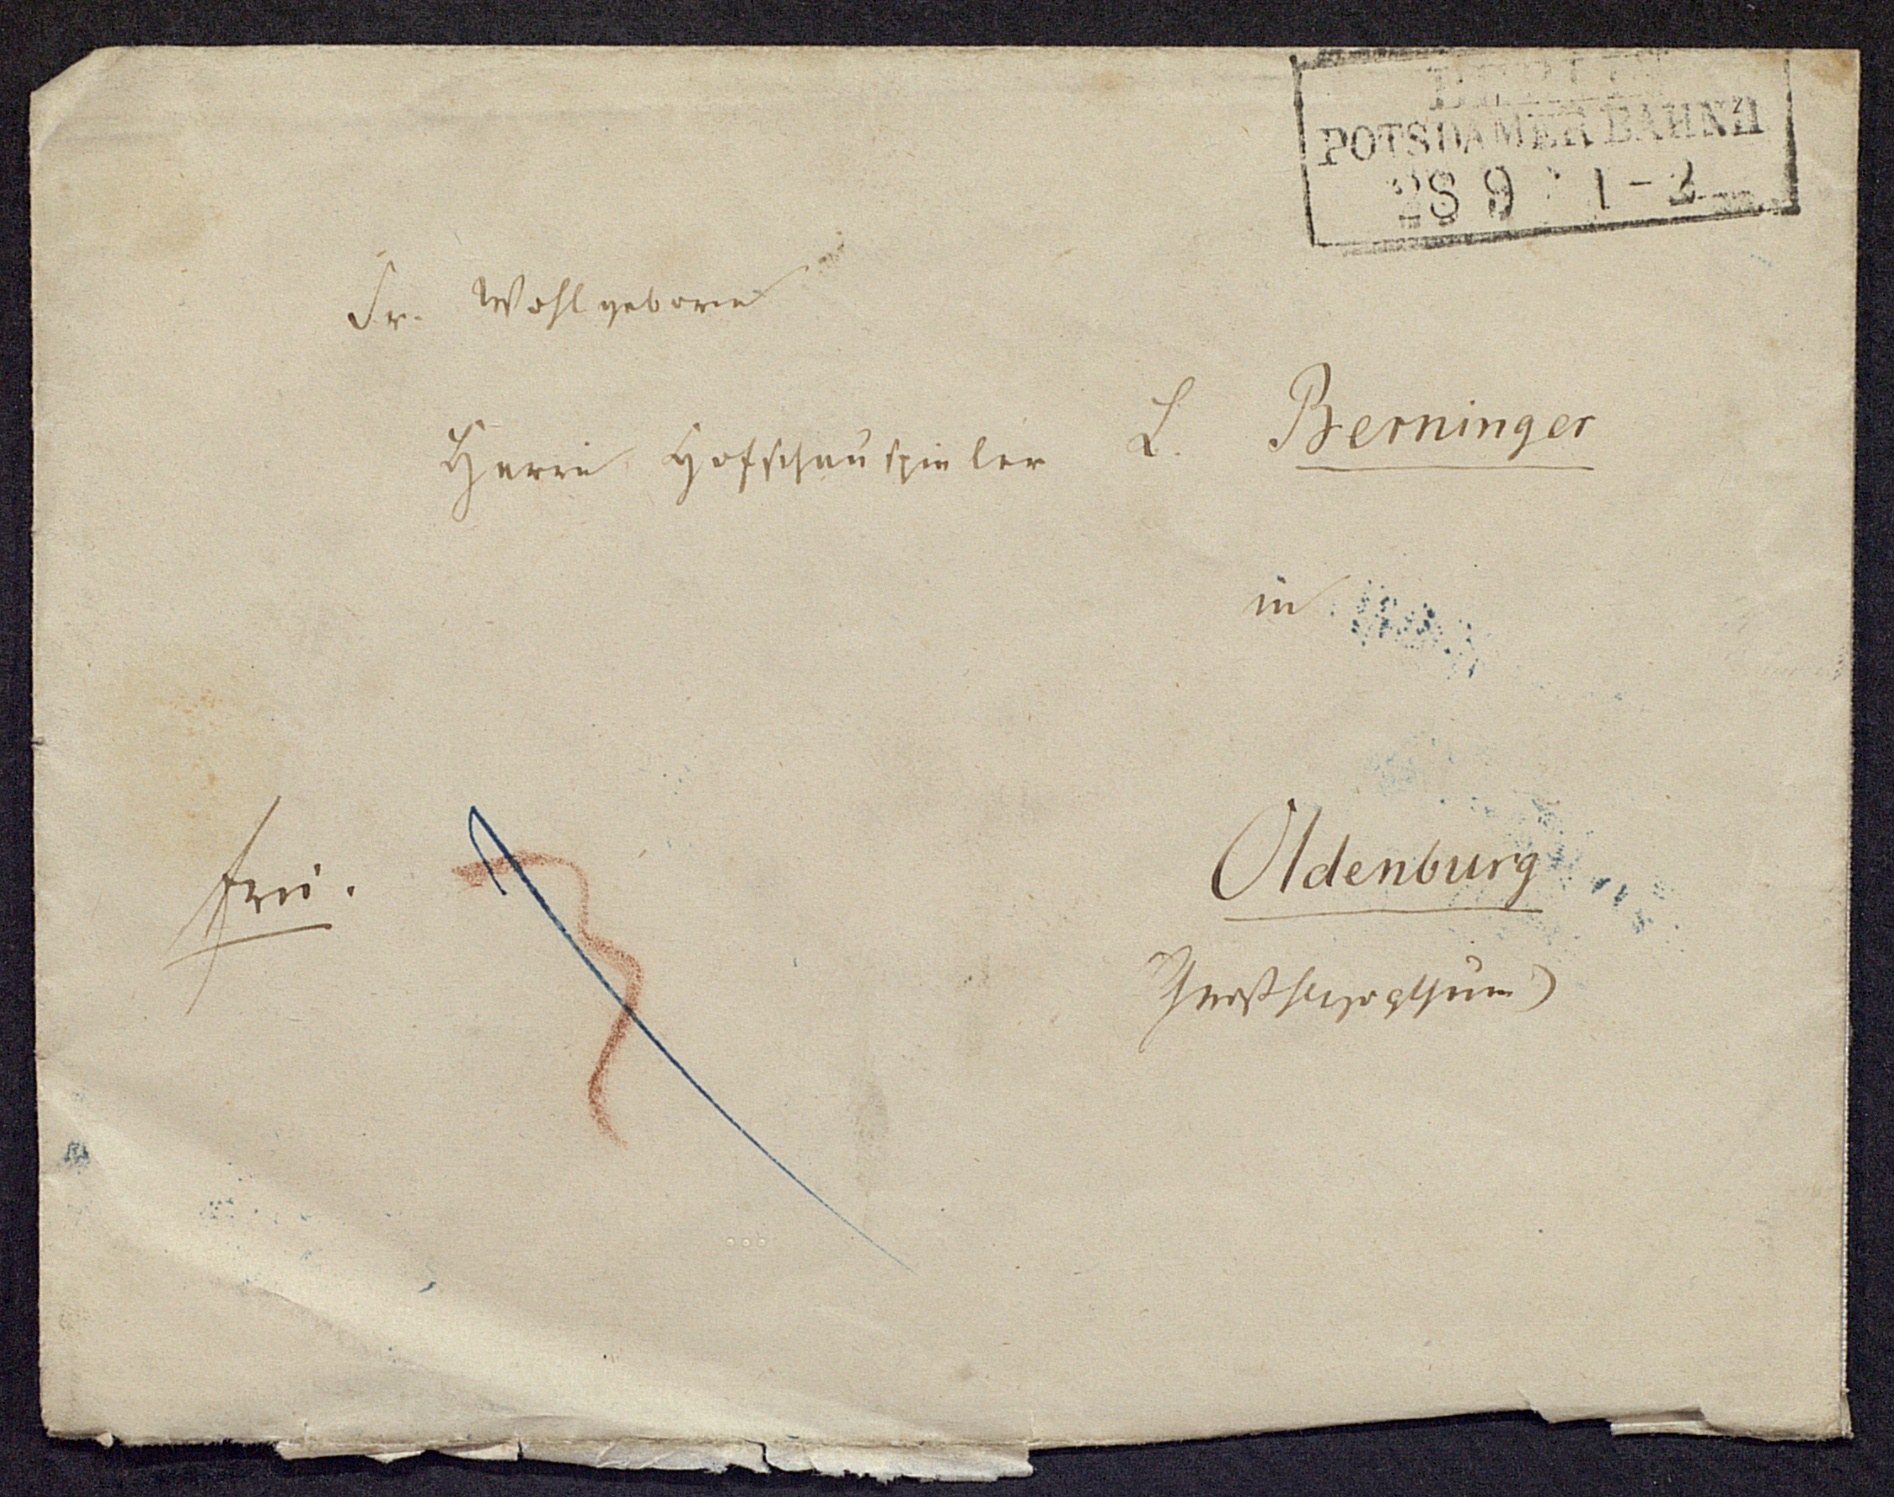 BERLIN
POTSDAMER BAHNH
28 9 1-2
Sr. Wohlgeboren
Herrn Hofschauspieler L. Berninger
in
frei.
Oldenburg
Großherzogthum